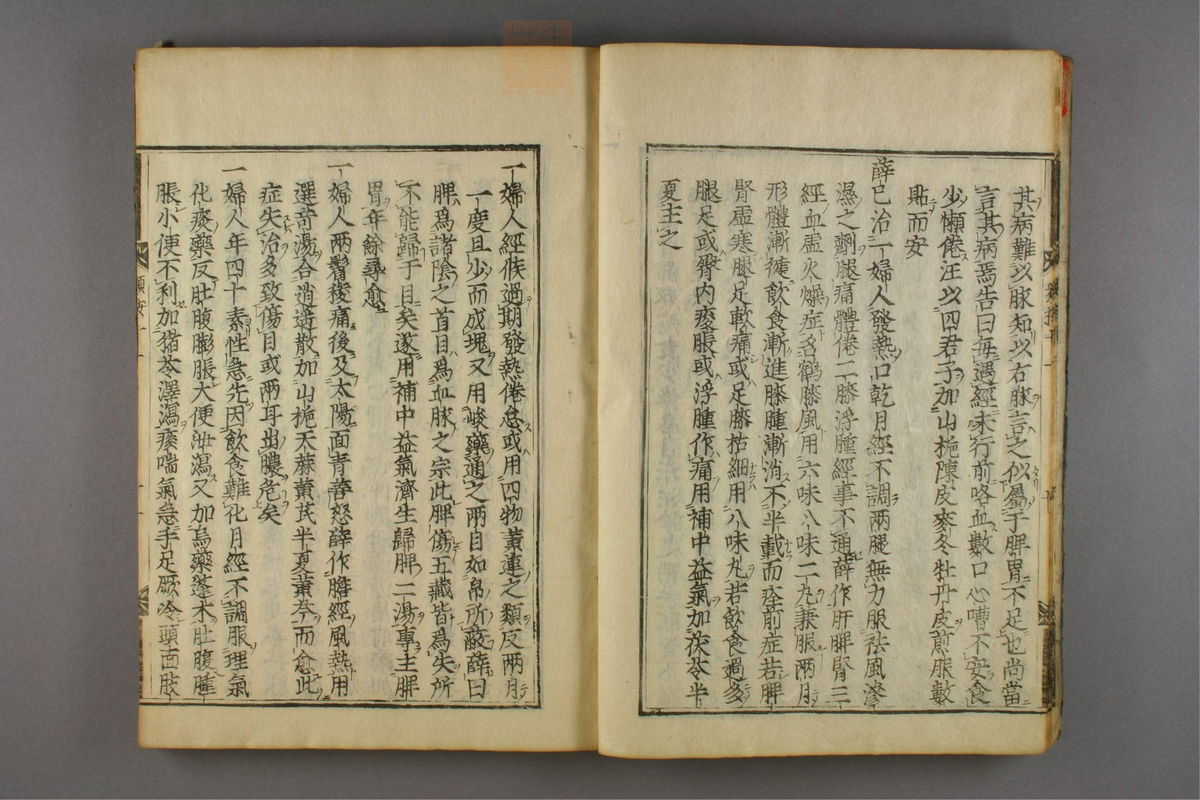 其病難以脉知以右脉言之似屬于脾胃不足也尚當
言其病焉告曰每遇經未行前咯血數口心嘈不安食
少懶倦汪以四君子加山梔陳皮麥冬牡丹皮煎服數
貼而安
薛已治一婦人發熱口乾月經不調兩腿無力服祛風滲
濕之劑腿痛體倦二膝浮腫經事不通薛作肝脾腎三
經血虛火燥症名鶴膝風用六味八味二丸兼服兩月
形體漸健飲食漸進膝腫漸消不半載而痊前症若脾
腎虛寒腿足軟痛或足膝枯細用八味丸若飲食過多
腿足或臀內痠脹或浮腫作痛用補中益氣加茯苓半
夏主之
一婦人經候過期發熱倦怠或用四物黃連之類反兩月
一度且少而成塊又用峻藥通之兩目如帛所蔽薛曰
脾爲諸陰之首目爲血脉之宗此脾傷五藏皆爲失所
不能歸于目矣遂用補中益氣濟生歸脾二湯專主脾
胃年餘尋愈
一婦人兩鬢痠痛後及太陽面青善怒薛作膽經風熱用
選奇湯合逍遙散加山梔天蔴黃芪半夏黃芩而愈此
症失治多致傷目或兩耳出膿危矣
一婦人年四十素性急先因飲食難化月經不調服理氣
化痰藥反肚腹膨脹大便泄瀉又加烏藥蓬朮肚腹腫
脹小便不利加猪苓澤瀉痰喘氣急手足厥冷頭面肢